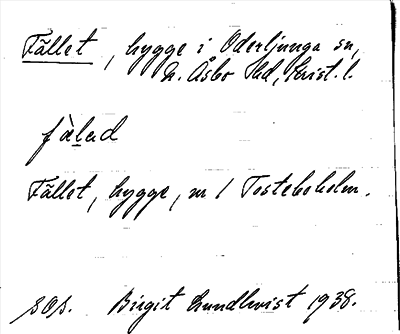 Fället, hygge i Oderljunga sn,
N. Åsbo hd, Krist. l.
fàlad
Fället, hygge, nr 1 Tosteboholm.
SOS. Birgit Lundkvist 1938.